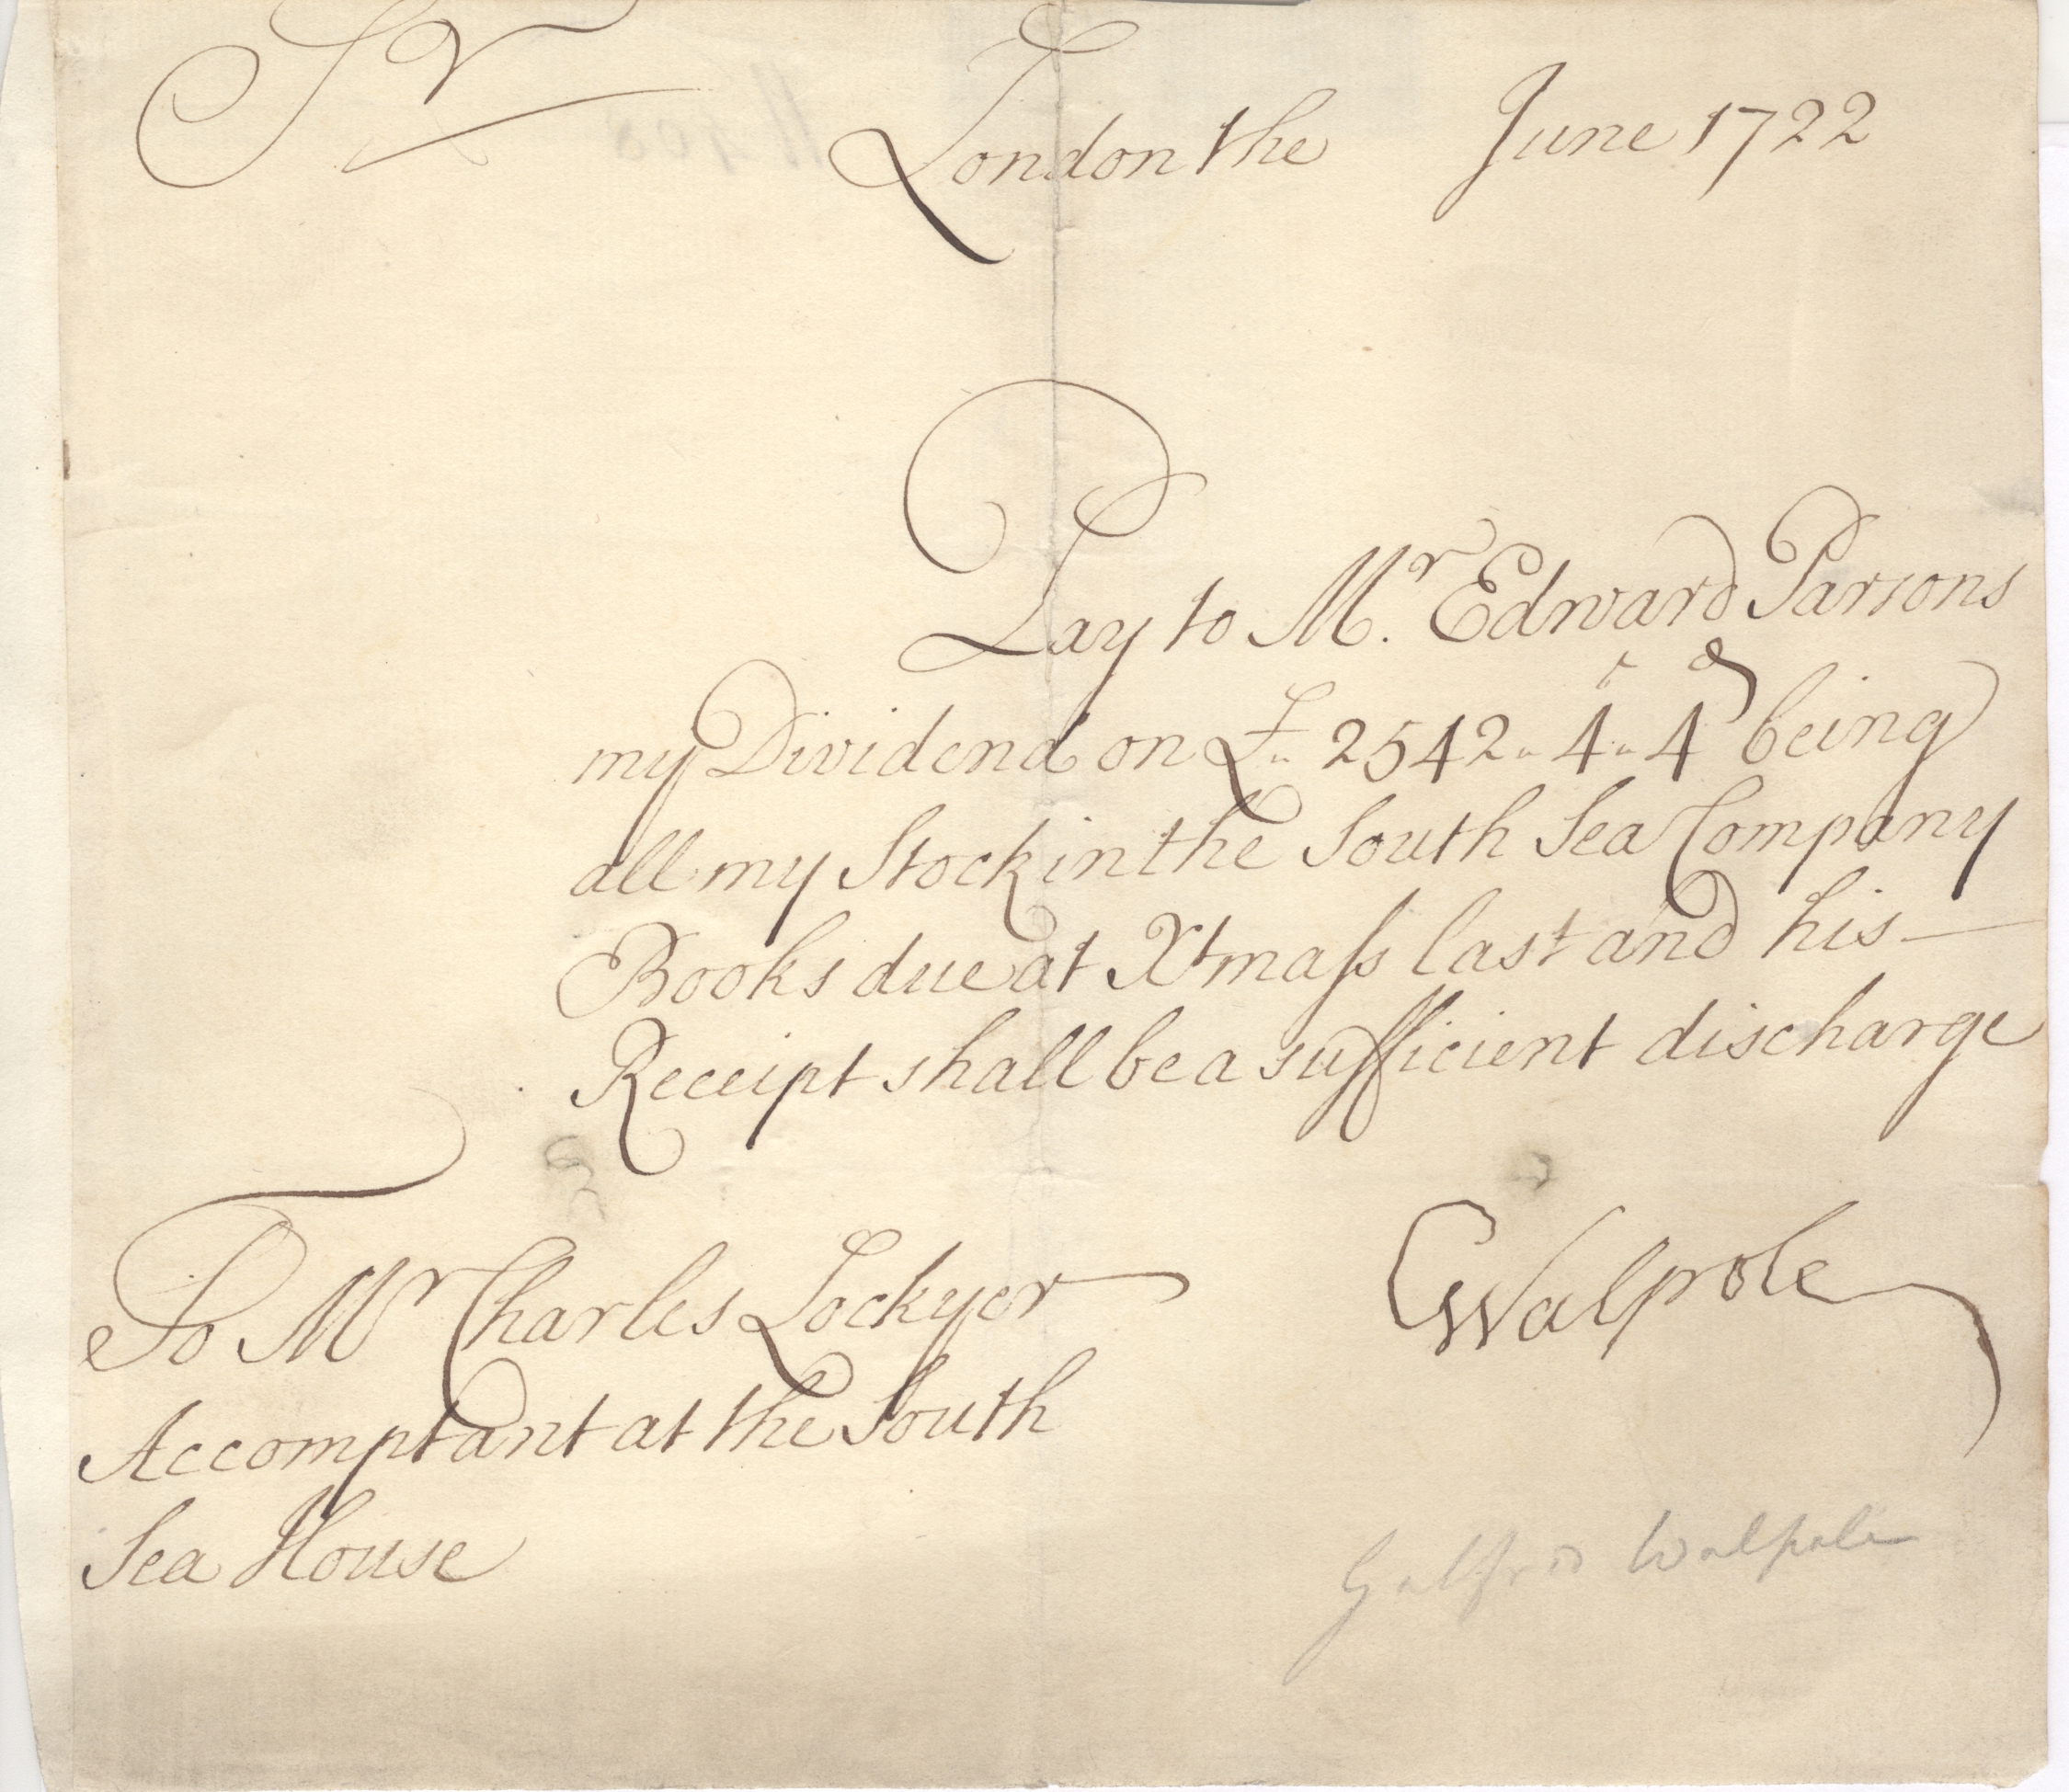 Sr
London the June 1722
Pay to Mr. Edward Parsons
my Dividend on £" 2542" 4s" 4d being
all my Stock in the South Sea Company
Books due at Xtmass last and his —
Receipt shall be a sufficient discharge
To Mr Charles Lockyer
Accomptant at the South
Sea House
GWalpole
Galfrid Walpole